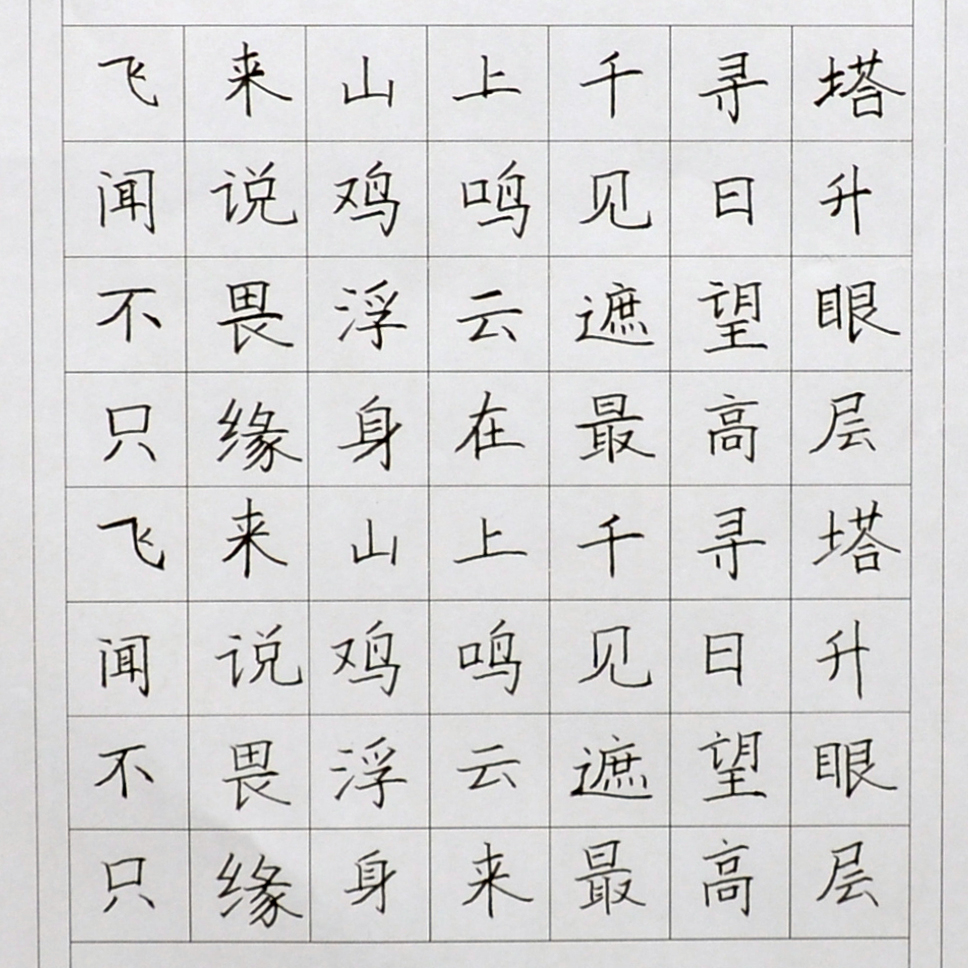 飞来山上千寻塔
闻说鸡鸣见日升
不畏浮云遮望眼
只缘身在最高层
飞来山上千寻塔
闻说鸡鸣见日升
不畏浮云遮望眼
只缘身来最高层